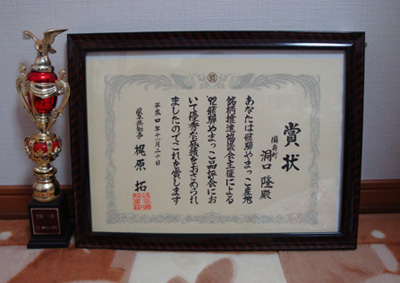 賞状
国府町
洞口隆殿
あなたは飛騨やまっこ産地
銘柄推進協議会主催による
'92飛騨やまっこ品評会にお
いて優秀な成績をおさめられ
ましたのでこれを賞します
平成四年十一月二十日
岐阜県知事
梶原拓